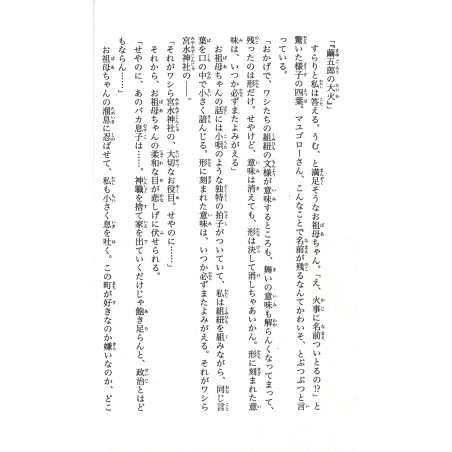 「『繭五郎の大火』」
　すらりと私は答える。うむ、と満足そうなお祖母ちゃん。「え、火事に名前ついとるの!?」と
驚いた様子の四葉。マユゴローさん、こんなことで名前が残るなんてかわいそ、とぶつぶつと言
っている。
「おかげで、ワシたちの組紐の文様が意味するところも、舞いの意味も解らんくなってまって、
残ったのは形だけ。せやけど、意味は消えても、形は決して消しちゃあいかん。形に刻まれた意
味は、いつか必ずまたよみがえる」
　お祖母ちゃんの話には小唄のような独特の拍子がついていて、私は組紐を組みながら、同じ言
葉を口の中で小さく諳んじる。形に刻まれた意味は、いつか必ずまたよみがえる。それがワシら
宮水神社の――。
「それがワシら宮水神社の、大切なお役目。せやのに……」
　それから、お祖母ちゃんの柔和な目が悲しげに伏せられる。
「せやのに、あのバカ息子は……。神職を捨て家を出ていくだけじゃ飽き足らんと、政治とはど
もならん……」
　お祖母ちゃんの溜息に忍ばせて、私も小さく息を吐く。この町が好きなのか嫌いなのか、どこ